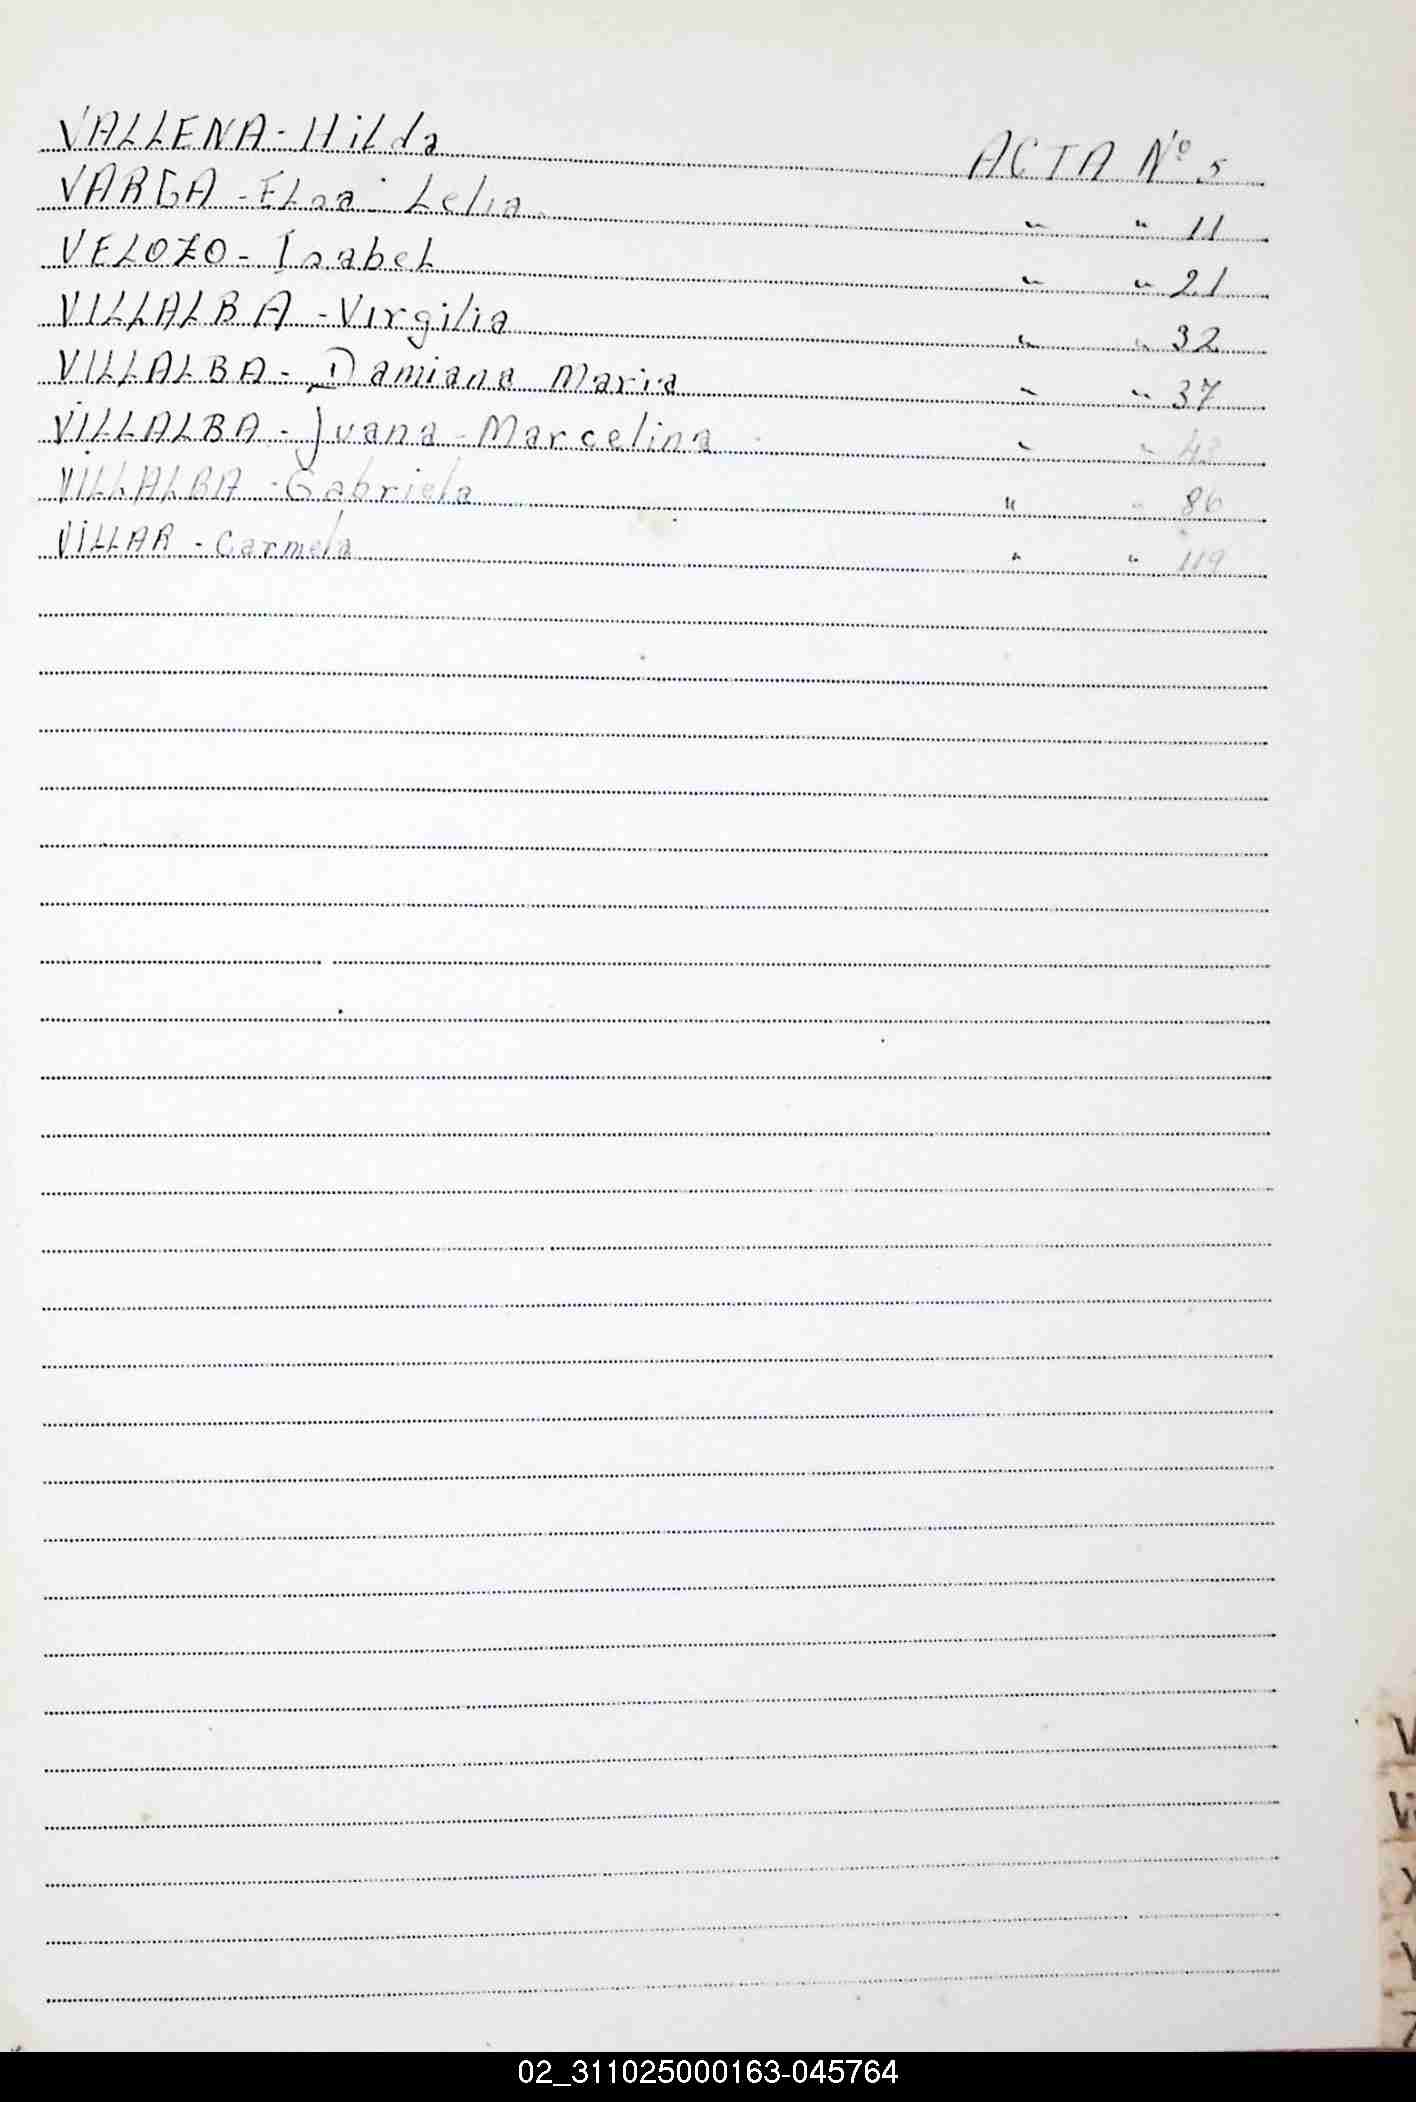 VALLENA - Hilda ACTA Nº 5
VARGA - Elsa Lelia " " 11
VELOZO - Isabel " " 21
VILLALBA - Virgilia " " 32
VILLALBA - Damiana Maria " " 37
VILLALBA - Juana - Marcelina " " 43
VILLALBA - Gabriela " " 86
VILLAR - Carmela " " 119
V
W
X
Y
Z
02_311025000163-045764